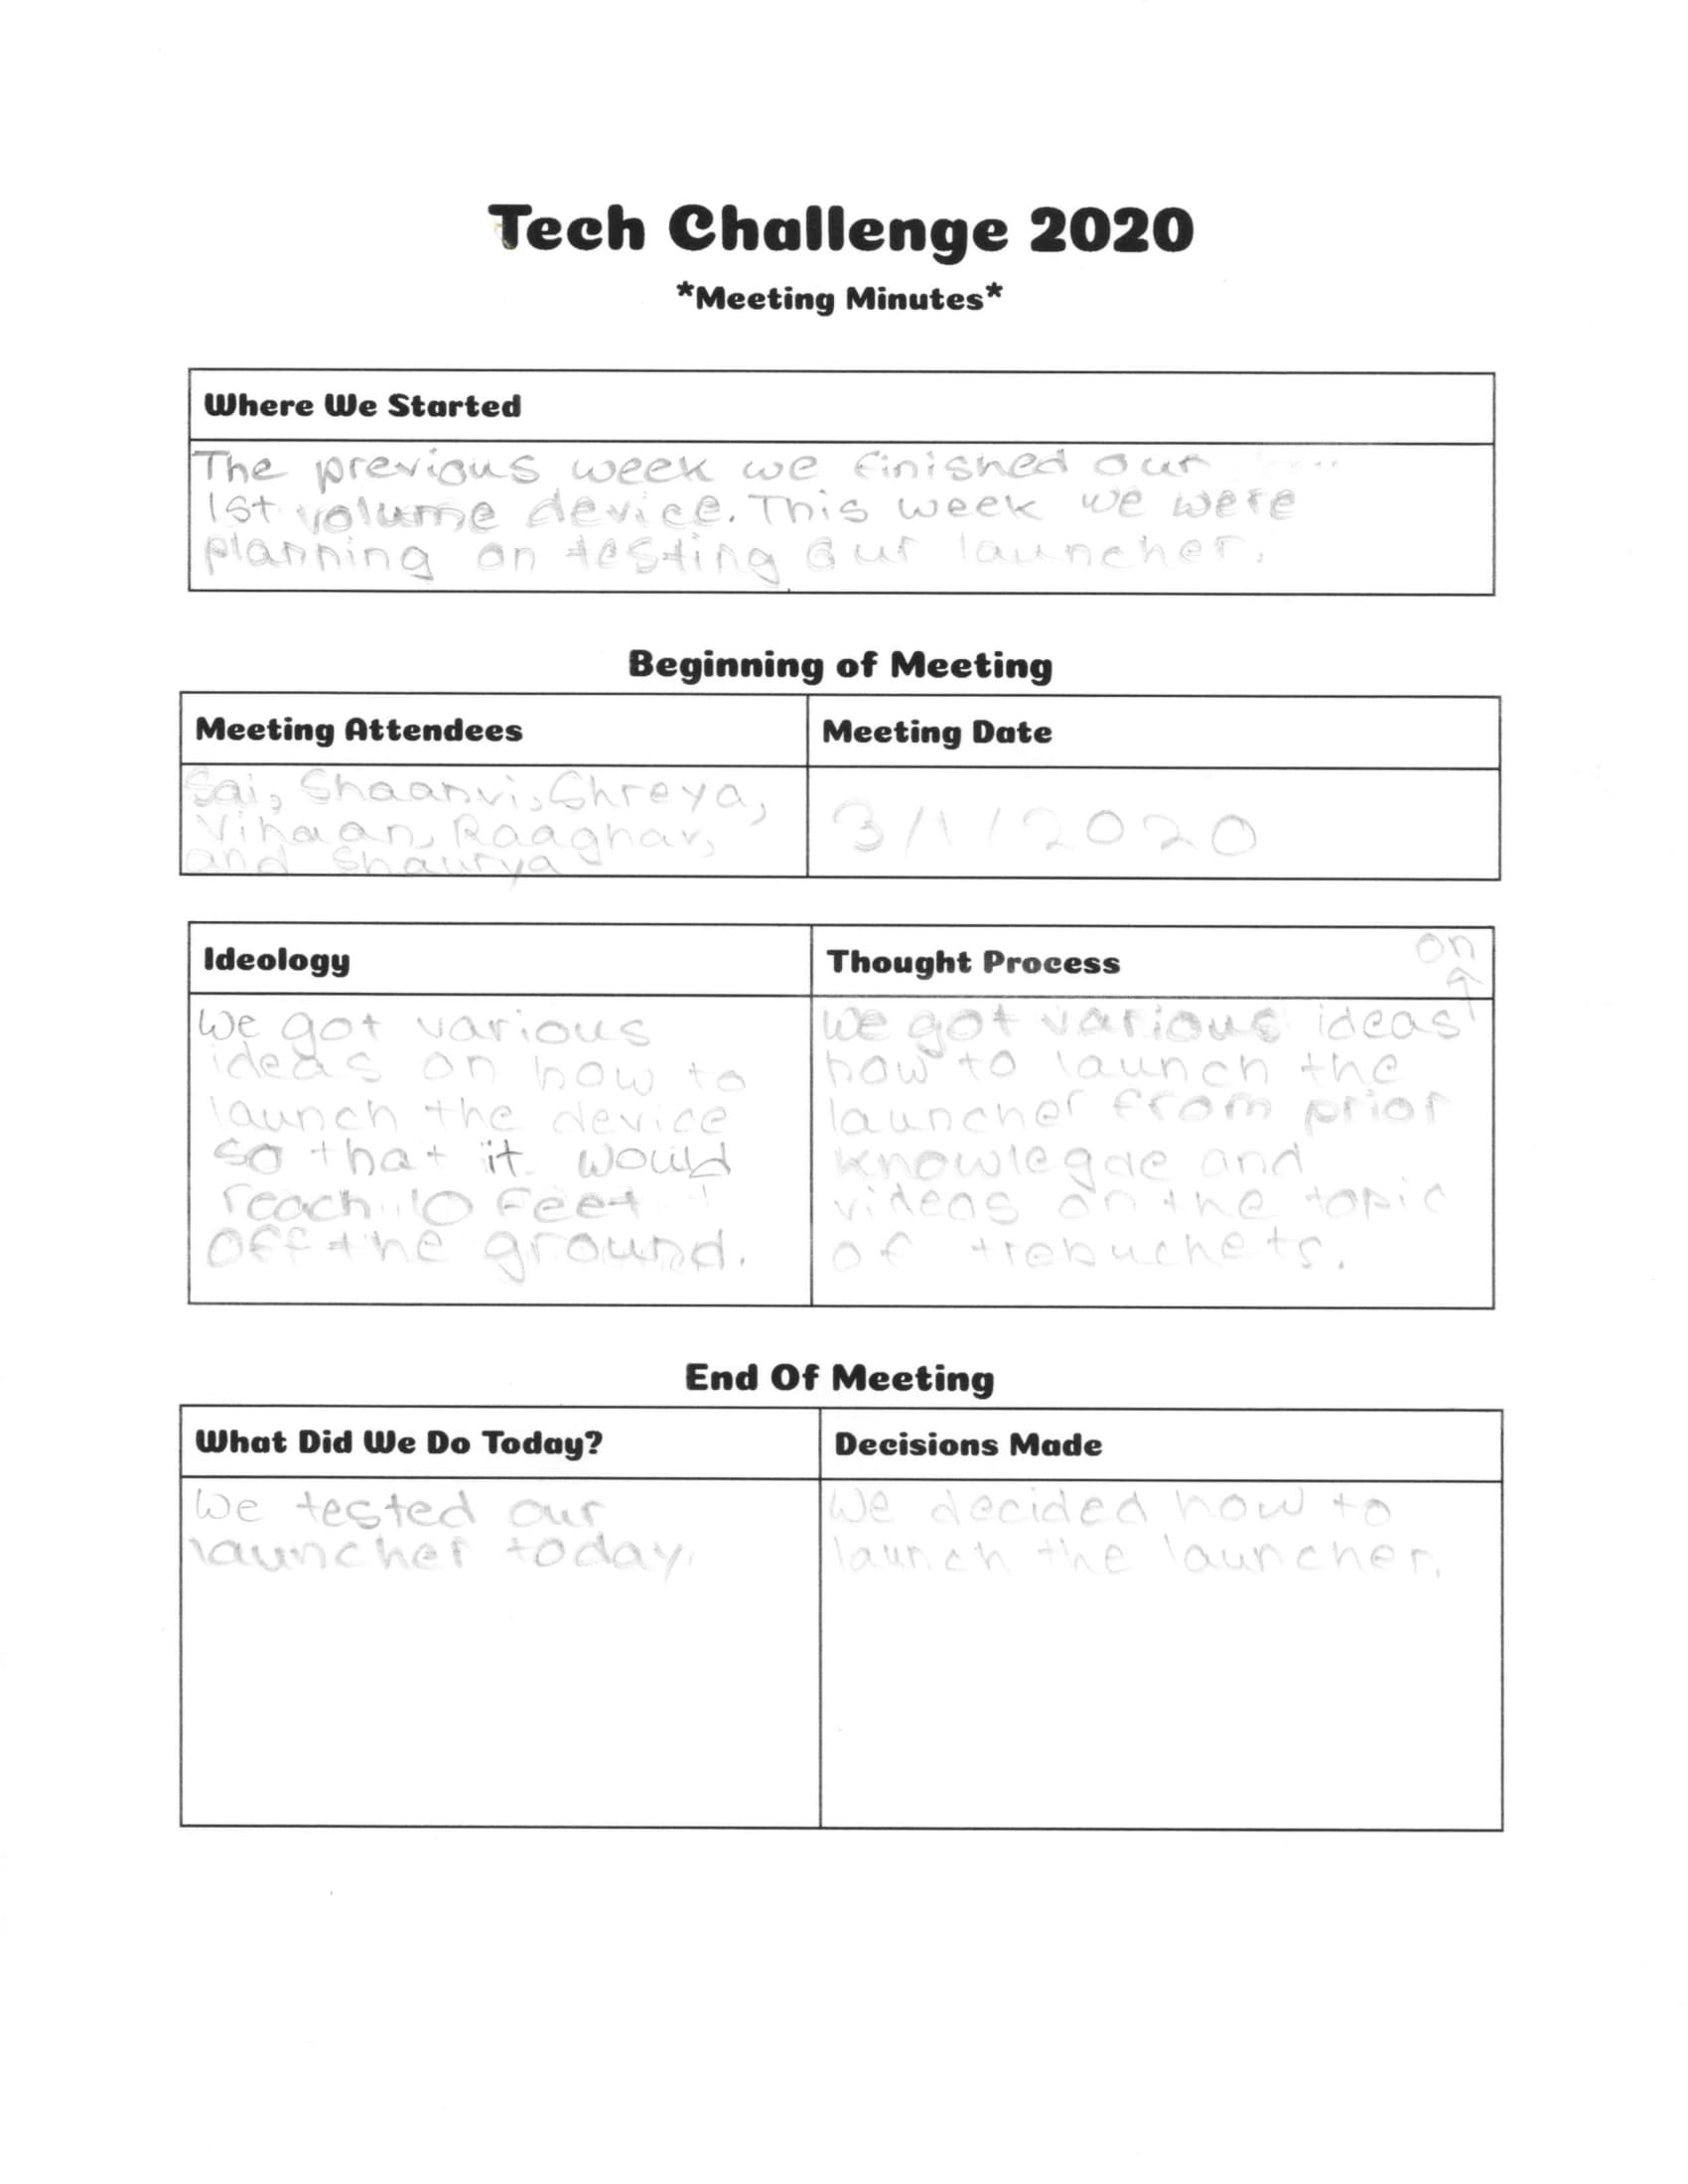 Tech Challenge 2020
*Meeting Minutes*
Where We Started
The previous week we finished our
1st volume device. This week we were
planning on testing our launcher.
Beginning of Meeting
Meeting Attendees
Meeting Date
Sai, Shaanvi, Shreya,
Vihaan, Raaghav,
and Shaurya
3/1/2020
Ideology
We got various
ideas on how to
launch the device
so that it would
reach 10 feet
off the ground.
Thought Process
on
We got various ideas
how to launch the
launcher from prior
knowlegde and
videos on the topic
of trebuchets.
End Of Meeting
What Did We Do Today?
We tested our
launcher today.
Decisions Made
We decided how to
launch the launcher.